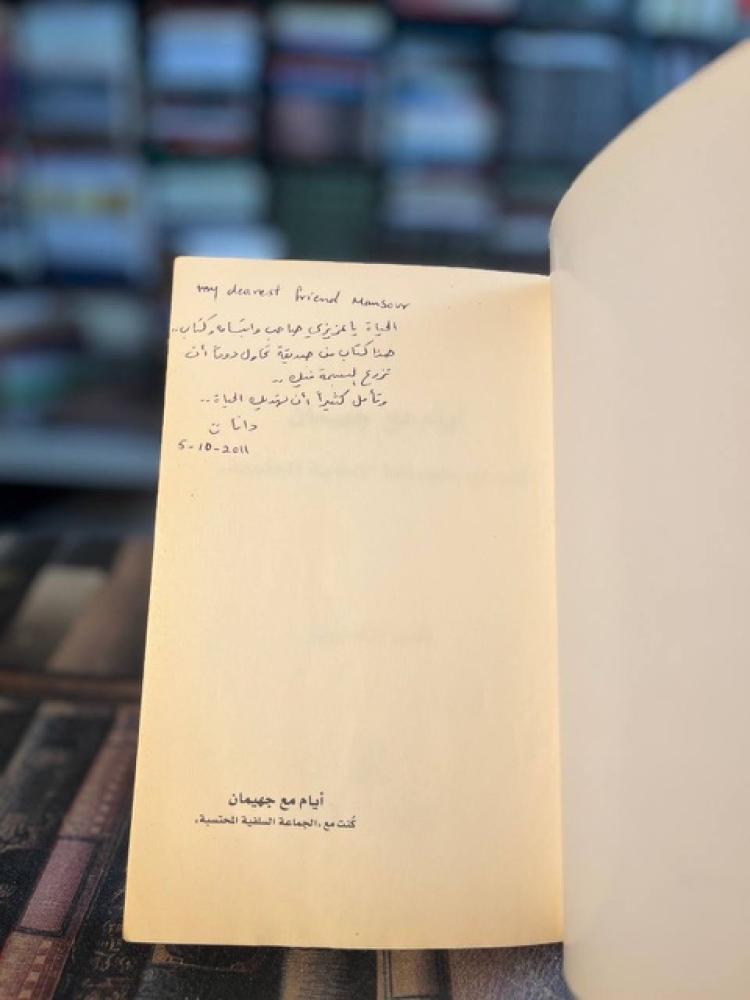 my dearest friend Mansour
الحياة يا عزيزي صاحب وابتسامة وكتاب..
هذا كتاب من صديقة تحاول دوماً أن
تزرع البسمة فيك ..
وتأمل كثيراً أن تهديك الحياة ..
دانا ت
5-10-2011
أيام مع جهيمان
كُنت مع «الجماعة السلفية المحتسبة»